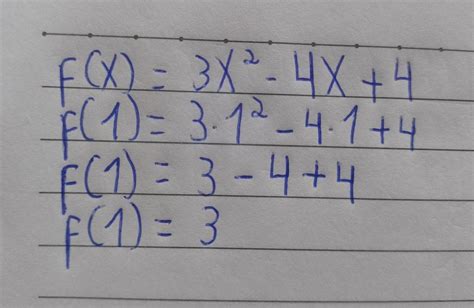 f(x) = 3x² - 4x + 4
f(1) = 3·1² - 4·1 + 4
f(1) = 3 - 4 + 4
f(1) = 3